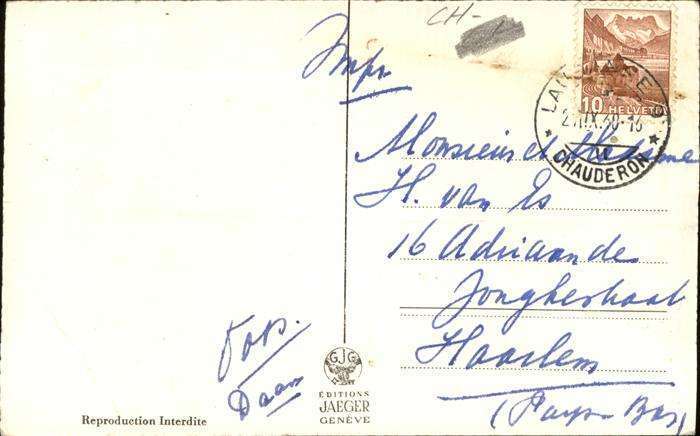 CH-
10 HELVETIA
LAUSANNE
CHAUDERON
Impr
Monsieur et Madame
H. van Es
16 Adriaan de
Jonghestraat
Haarlem
(Pays-Bas)
Daan
GJG
ÉDITIONS
JAEGER
GENÈVE
Reproduction Interdite